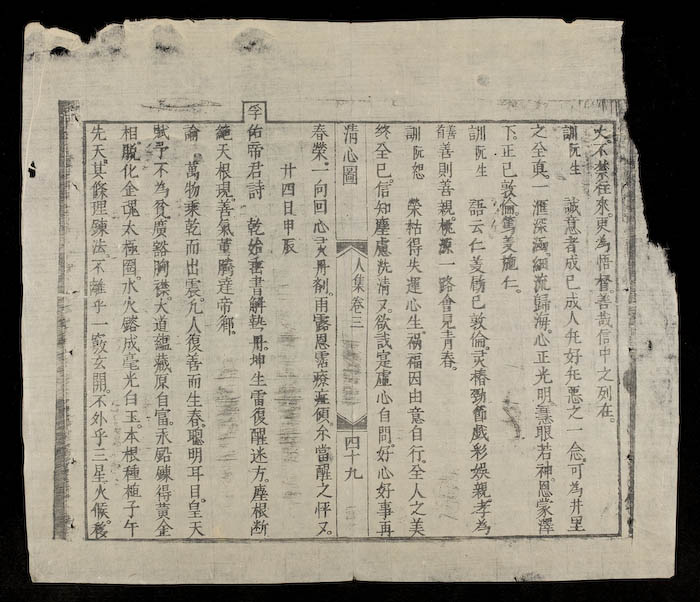 火不禁在來。更為悟督善哉信中之列在。
訓阮生　誠意者成已成人。好惡之一念。可為井里
之全真。一滙深涵。細流歸海。心正光明。慧眼若神。恩蒙澤
下。正已敦倫。篤義施仁。
訓阮生　語云仁義脩已敦倫。灵椿勁節戲彩娛親。孝為
善則善親。桃源一路會見青春。
訓阮恕　榮枯得失運心生。禍福因由意自行。全人之美
終全已。信知塵慮洗清又。欲試寔虛心自問。好心好事再
清心圖
人集卷三
四十九
春榮。一向回心灵丹剂。雨露恩霑療症傾。尒當醒之怀又。
廿四日甲辰
孚佑帝君詩　乾始垂書解執冊。坤生雷復醒迷方。塵根断
絕天根現。善氣薰騰達帝鄉。
論　萬物乘乾而出震。凡人復善而生春。聰明耳目。皇天
賦予不為貧。廣豁胸襟。大道蘊藏原自富。汞鉛鍊得黃金
相。脫化金魂太極圈。水火鎔成毫光白玉。本根種植子午
先天。其條理鍊法。不離乎一竅玄開。不外乎三星火候。移